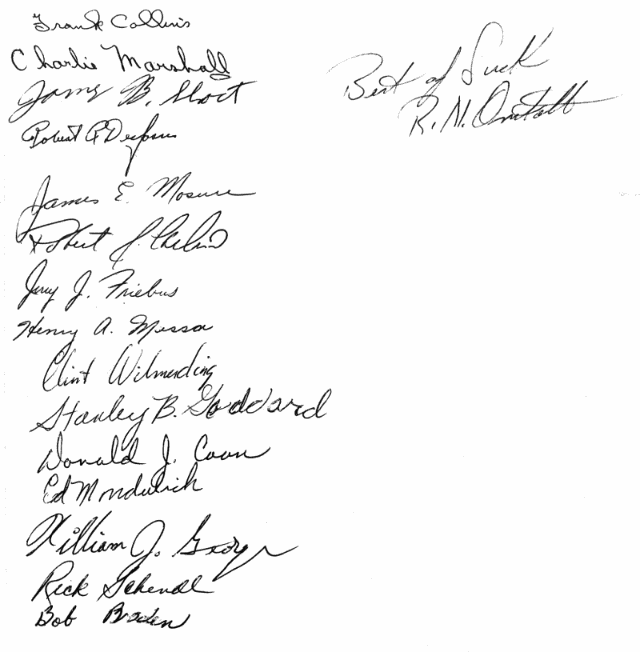 Frank Collins
Charlie Marshall
James B. Short
Robert P.
James E. Mosure
Robert J.
Jerry J. Friebus
Henry A. Messa
Clint Wilmerding
Stanley B. Goddard
Donald J. Coon
Ed
William J. George
Rick Schendl
Bob Braden
Best of Luck
R. N. Onstott